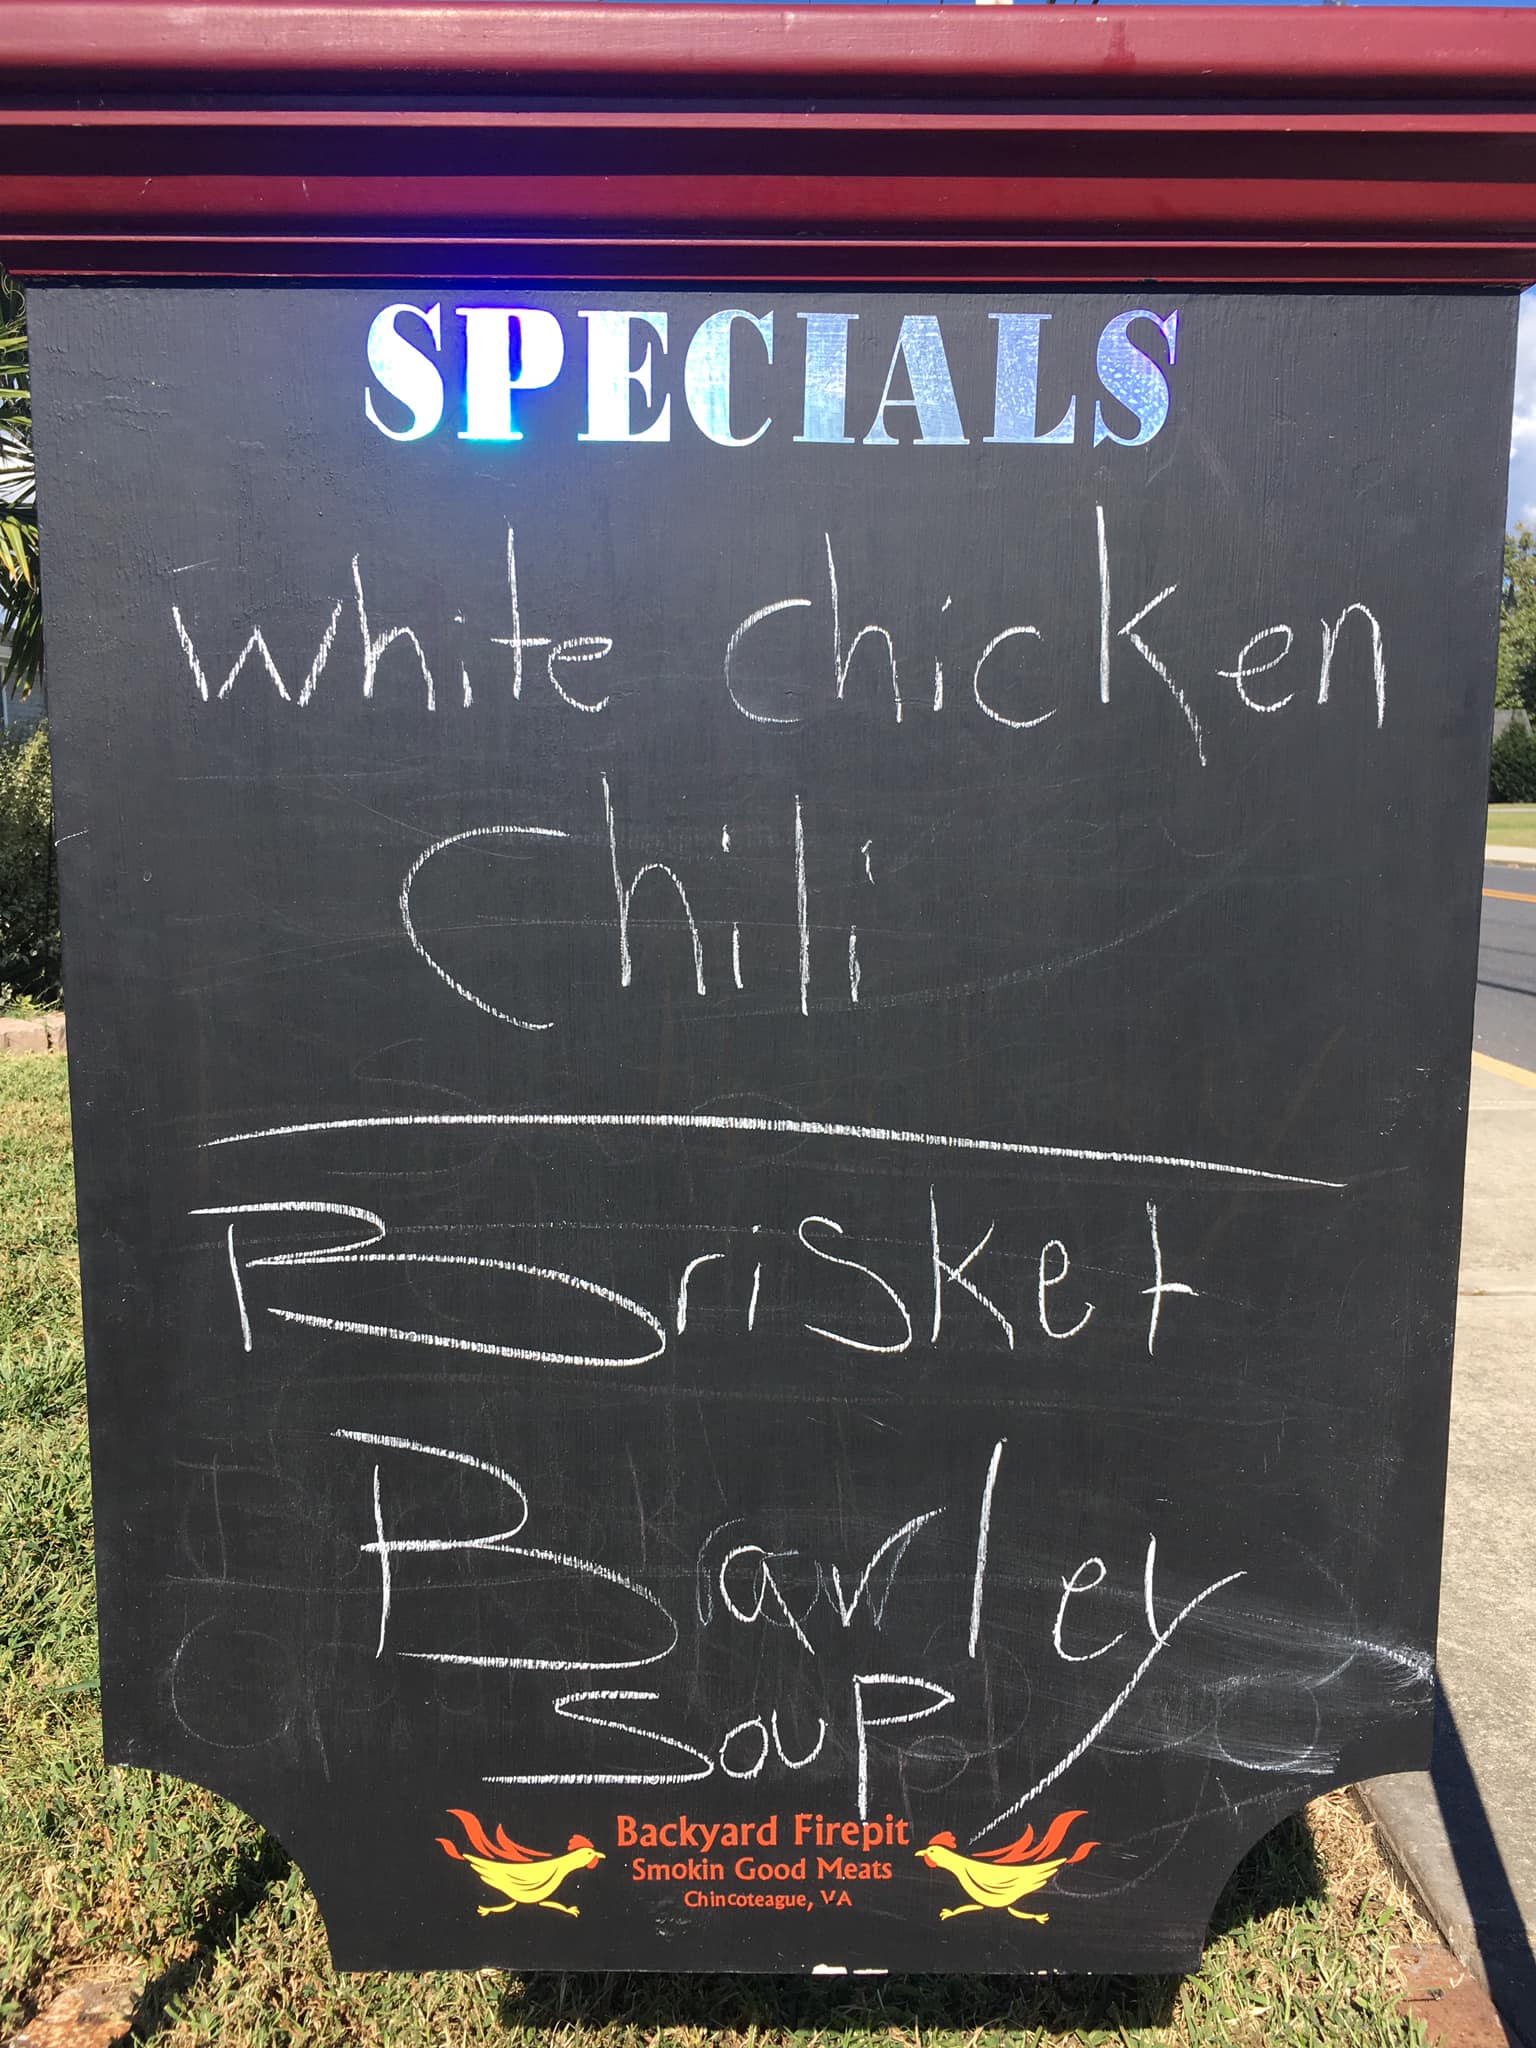 SPECIALS
white chicken
Chili
Brisket
Barley
Soup
Backyard Firepit
Smokin Good Meats
Chincoteague, VA